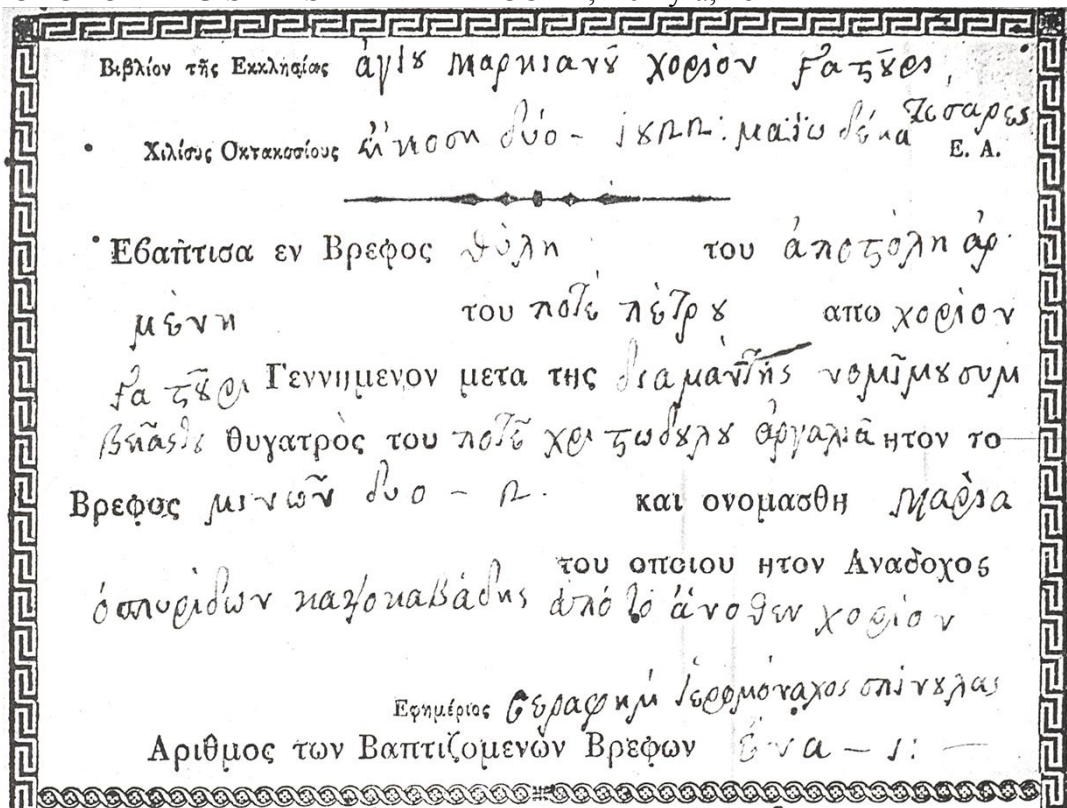 Βιβλίον τῆς Εκκλησίας ἁγίȣ μαρκιανȣ͂ χορίον γαςȣ́ρι
τέσαρες
Χιλίους Οκτακοσίους εἴκοση δύο - 1822: μαΐω δέκα Ε. Α.
Εβάπτισα εν Βρεφος θύλη του ἀποςόλη ἀρ
μένη του ποτὲ πέτρȣ απω χορίον
γαςȣ́ρι Γεννημενον μετα της διαμάντης νομίμȣ συμ
θυγατρὸς του ποτὲ χριςωδύλȣ ἀργαλιᾶ ητον το
Βρεφος μινῶν δύο - 2. και ονομασθη Μαρία
του οποιου ητον Αναδοχος
ὁ σπυρίδων καψοκαβάδης ἀπό το ἄνοθεν χορίον
Εφημέριος Σεραφὴμ ἱερομόναχος σπίνȣλας
Αριθμος των Βαπτιζομενων Βρεφων ἕνα - 1: -